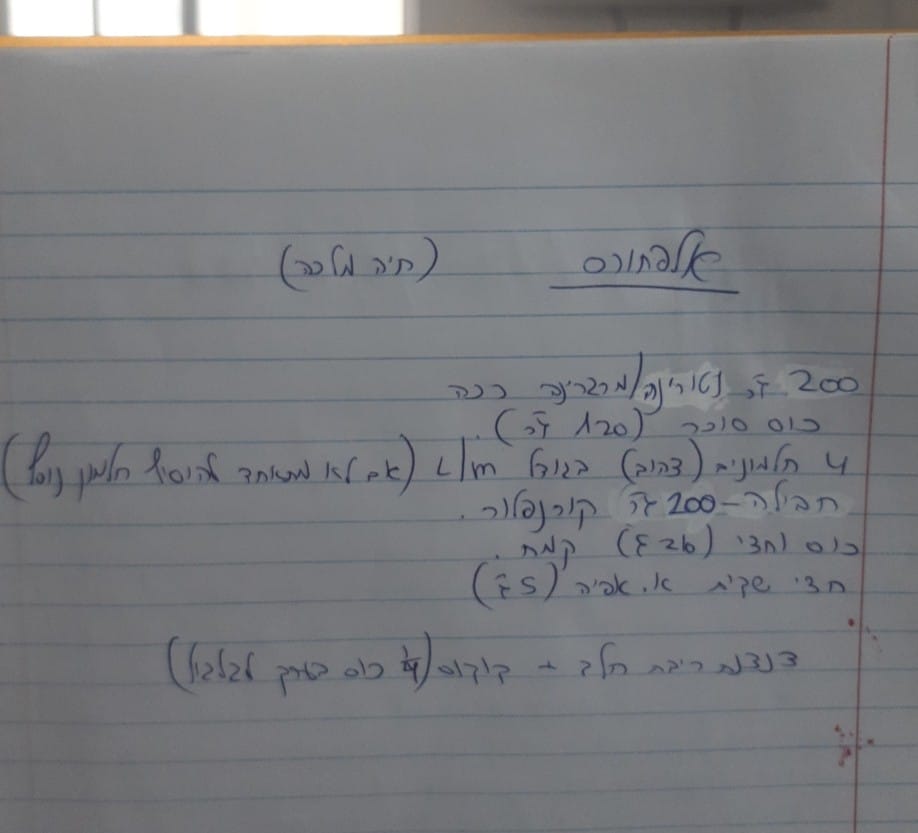 אלפחורס (חיה מלכה)
200 גר' נטורינה/מרגרינה רכה
כוס סוכר (120 גר').
4 חלמונים (צהוב) בגודל L/m (אם לא מתאחד להוסיף חלמון נוסף)
חבילה-200 גר' קורנפלור.
כוס וחצי (26 ג') קמח.
חצי שקית א. אפיה (5 ג')
צנצנת ריבת חלב + קוקוס (1/4 כוס בערך לגלגול)